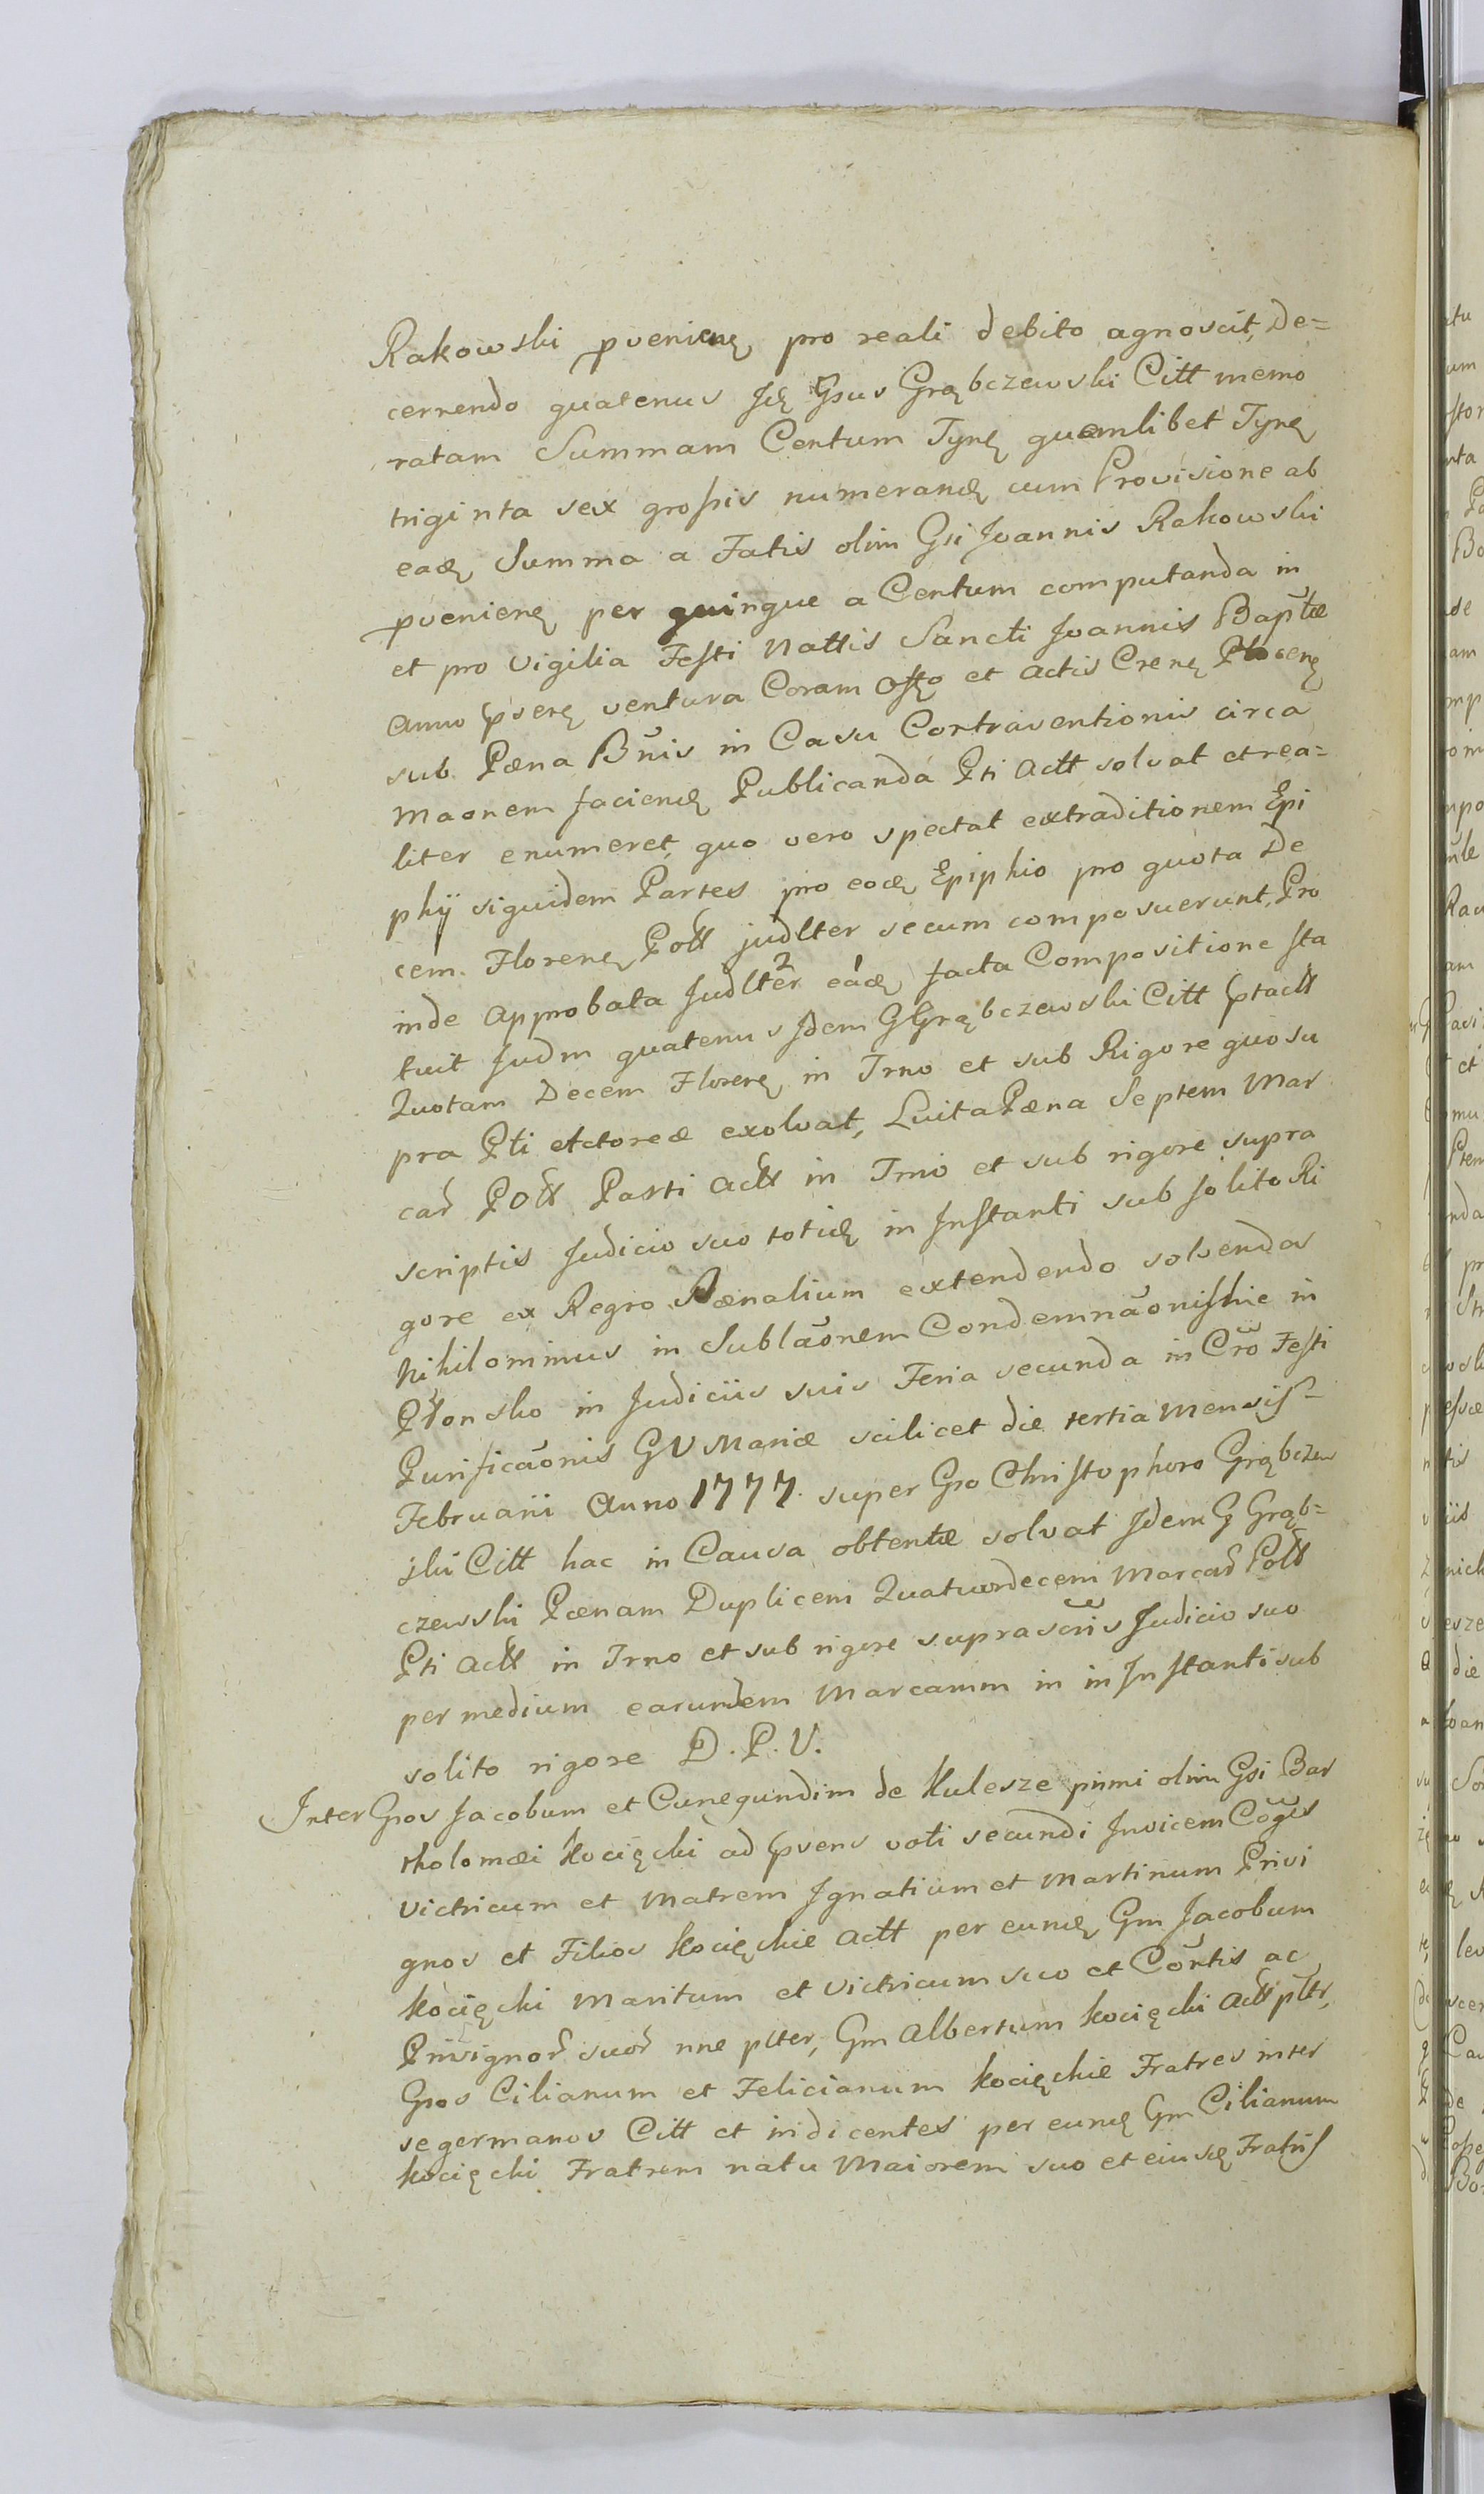 Rakowski pvenienę pro reali debito agnoscit, De=
cernendo quatenus Idę Gsus Grąbczewski Citt memo
ratam Summam Centum Tynę quemlibet Tynę
triginta sex grossis numerandę cum Provisione ab
eadę Summa a Fatis olim Gsi Joannis Rakowski
pvenienę per quinque a Centum computanda in
et pro Vigilia Festi Nattis Sancti Joannis Baptæ
Anno pserę ventura Coram Offo et Actis Crenę Plocenę
sub Pæna Bnis in Casu Contraventionis circa
Maonem faciendę Publicanda Pti Actt solvat et rea=
liter enumeret, quo vero spectat extraditionem Epi
phij siquidem Partes pro eodę Epiphio pro quota De
cem. Florenę Poll judlter secum composuerunt, Pro
inde Approbata Judlter 2 eadę 1 facta Compositione sta
tuit Judm quatenus Idem G Grąbczewski Citt ptactt
Quotam Decem Florenę in Trno et sub Rigore quo su
pra Pti Actoreæ exolvat, Luita Pæna Septem Mar
car Poll Parti Actt in Trno et sub rigore supra
scriptis Judicio suo totidę in Instanti sub solito Ri
gore ex Regro Pænalium extendendo solvendas
Nihilominus in Sublaonem Condemnaonis hic in
Płonsko in Judiciis suis Feria secunda in Cro Festi
Purificaonis G V Mariæ scilicet die tertia Mensis
Februarii Anno 1777. super Gso Christophoro Grąbczew
ski Citt hac in Causa obtentæ solvat Idem G Grąb=
czewski Pænam Duplicem Quatuordecem Marcar Poll
Pti Actt in Trno et sub rigore suprascris Judicio suo
per medium earundem Marcarum in in Instanti sub
solito rigore D. P. V.
Inter Gsos Jacobum et Cunegundim de Kulesze primi olim Gsi Bar
tholomæi Kocięcki ad psens voti secundi Invicem Coges
Victricum et Matrem Ignatium et Martinum Privi
gnos et Filios Kocięckie Actt per eundę Gm Jacobum
Kocięcki Maritum et Victricum suo et Cortis ac
Privignor suor nne plter, Gm Albertum Kocięcki Actt pltr,
Gsos Cilianum et Felicianum Kocięckie Fratres inter
se germanos Citt et indicentes per eundę Gm Cilianum
Kocięcki Fratrem natu Maiorem suo et eiusdę Fratris